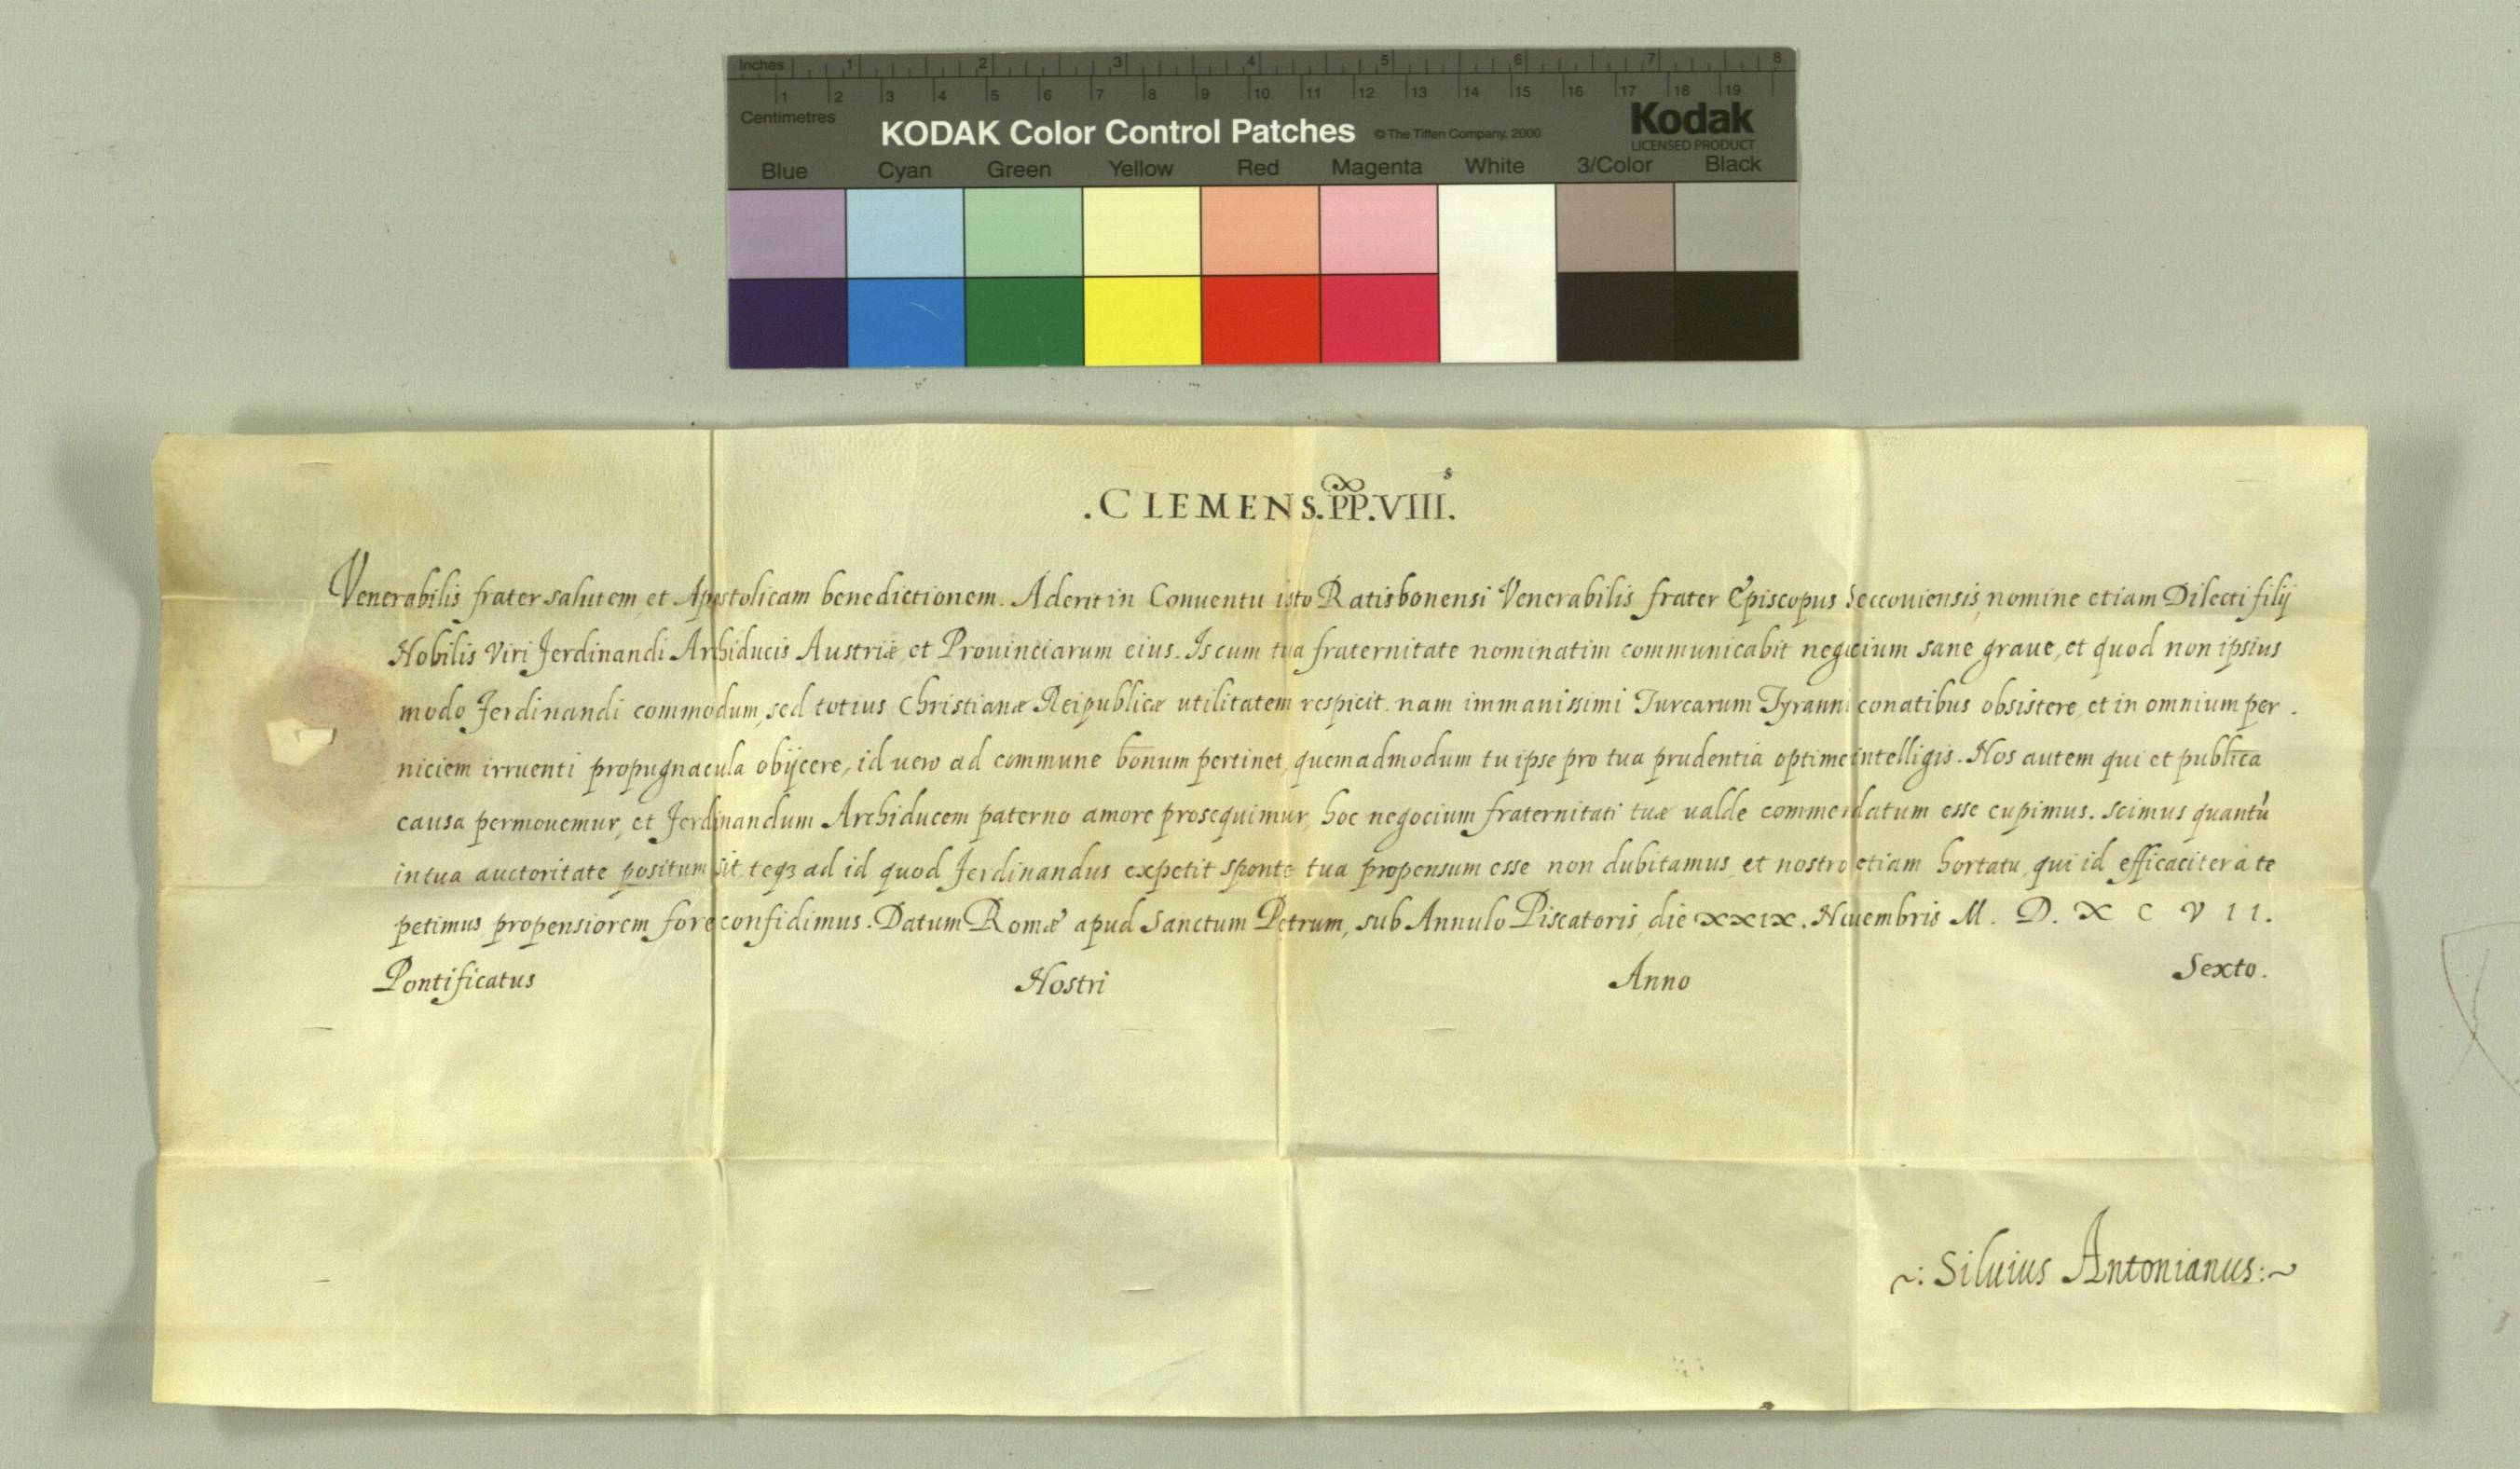 Inches 1 2 3 4 5 6 7 8
1 2 3 4 5 6 7 8 9 10 11 12 13 14 15 16 17 18 19
Centimetres
KODAK Color Control Patches © The Tiffen Company, 2000 Kodak
LICENSED PRODUCT
Blue Cyan Green Yellow Red Magenta White 3/Color Black
.CLEMENS.PP.VIII.s
Venerabilis frater salutem, et Apostolicam benedictionem. Aderit in Conuentu isto Ratisbonensi Venerabilis frater Episcopus Seccouiensis, nomine etiam Dilecti filij
Nobilis Viri Ferdinandi Archiducis Austriæ, et Prouinciarum eius. Is cum tua fraternitate nominatim communicabit negocium sane graue, et quod non ipsius
modo Ferdinandi commodum, sed totius Christianæ Reipublicæ utilitatem respicit. nam immanissimi Turcarum Tyranni conatibus obsistere, et in omnium per.
niciem irruenti propugnacula obijcere, id uero ad commune bonum pertinet, quemadmodum tu ipse pro tua prudentia optime intelligis. Nos autem qui et publica
causa permouemur, et Ferdinandum Archiducem paterno amore prosequimur, hoc negocium fraternitati tuæ ualde commendatum esse cupimus. Scimus quantũ
in tua auctoritate positum sit, teqз ad id quod Ferdinandus expetit sponte tua propensum esse non dubitamus, et nostro etiam hortatu, qui id efficaciter à te
petimus propensiorem fore confidimus. Datum Romæ apud Sanctum Petrum, sub Annulo Piscatoris, die xxix. Nouembris M. D. X C V I I.
Pontificatus Nostri Anno Sexto.
~: Siluius Antonianus :~